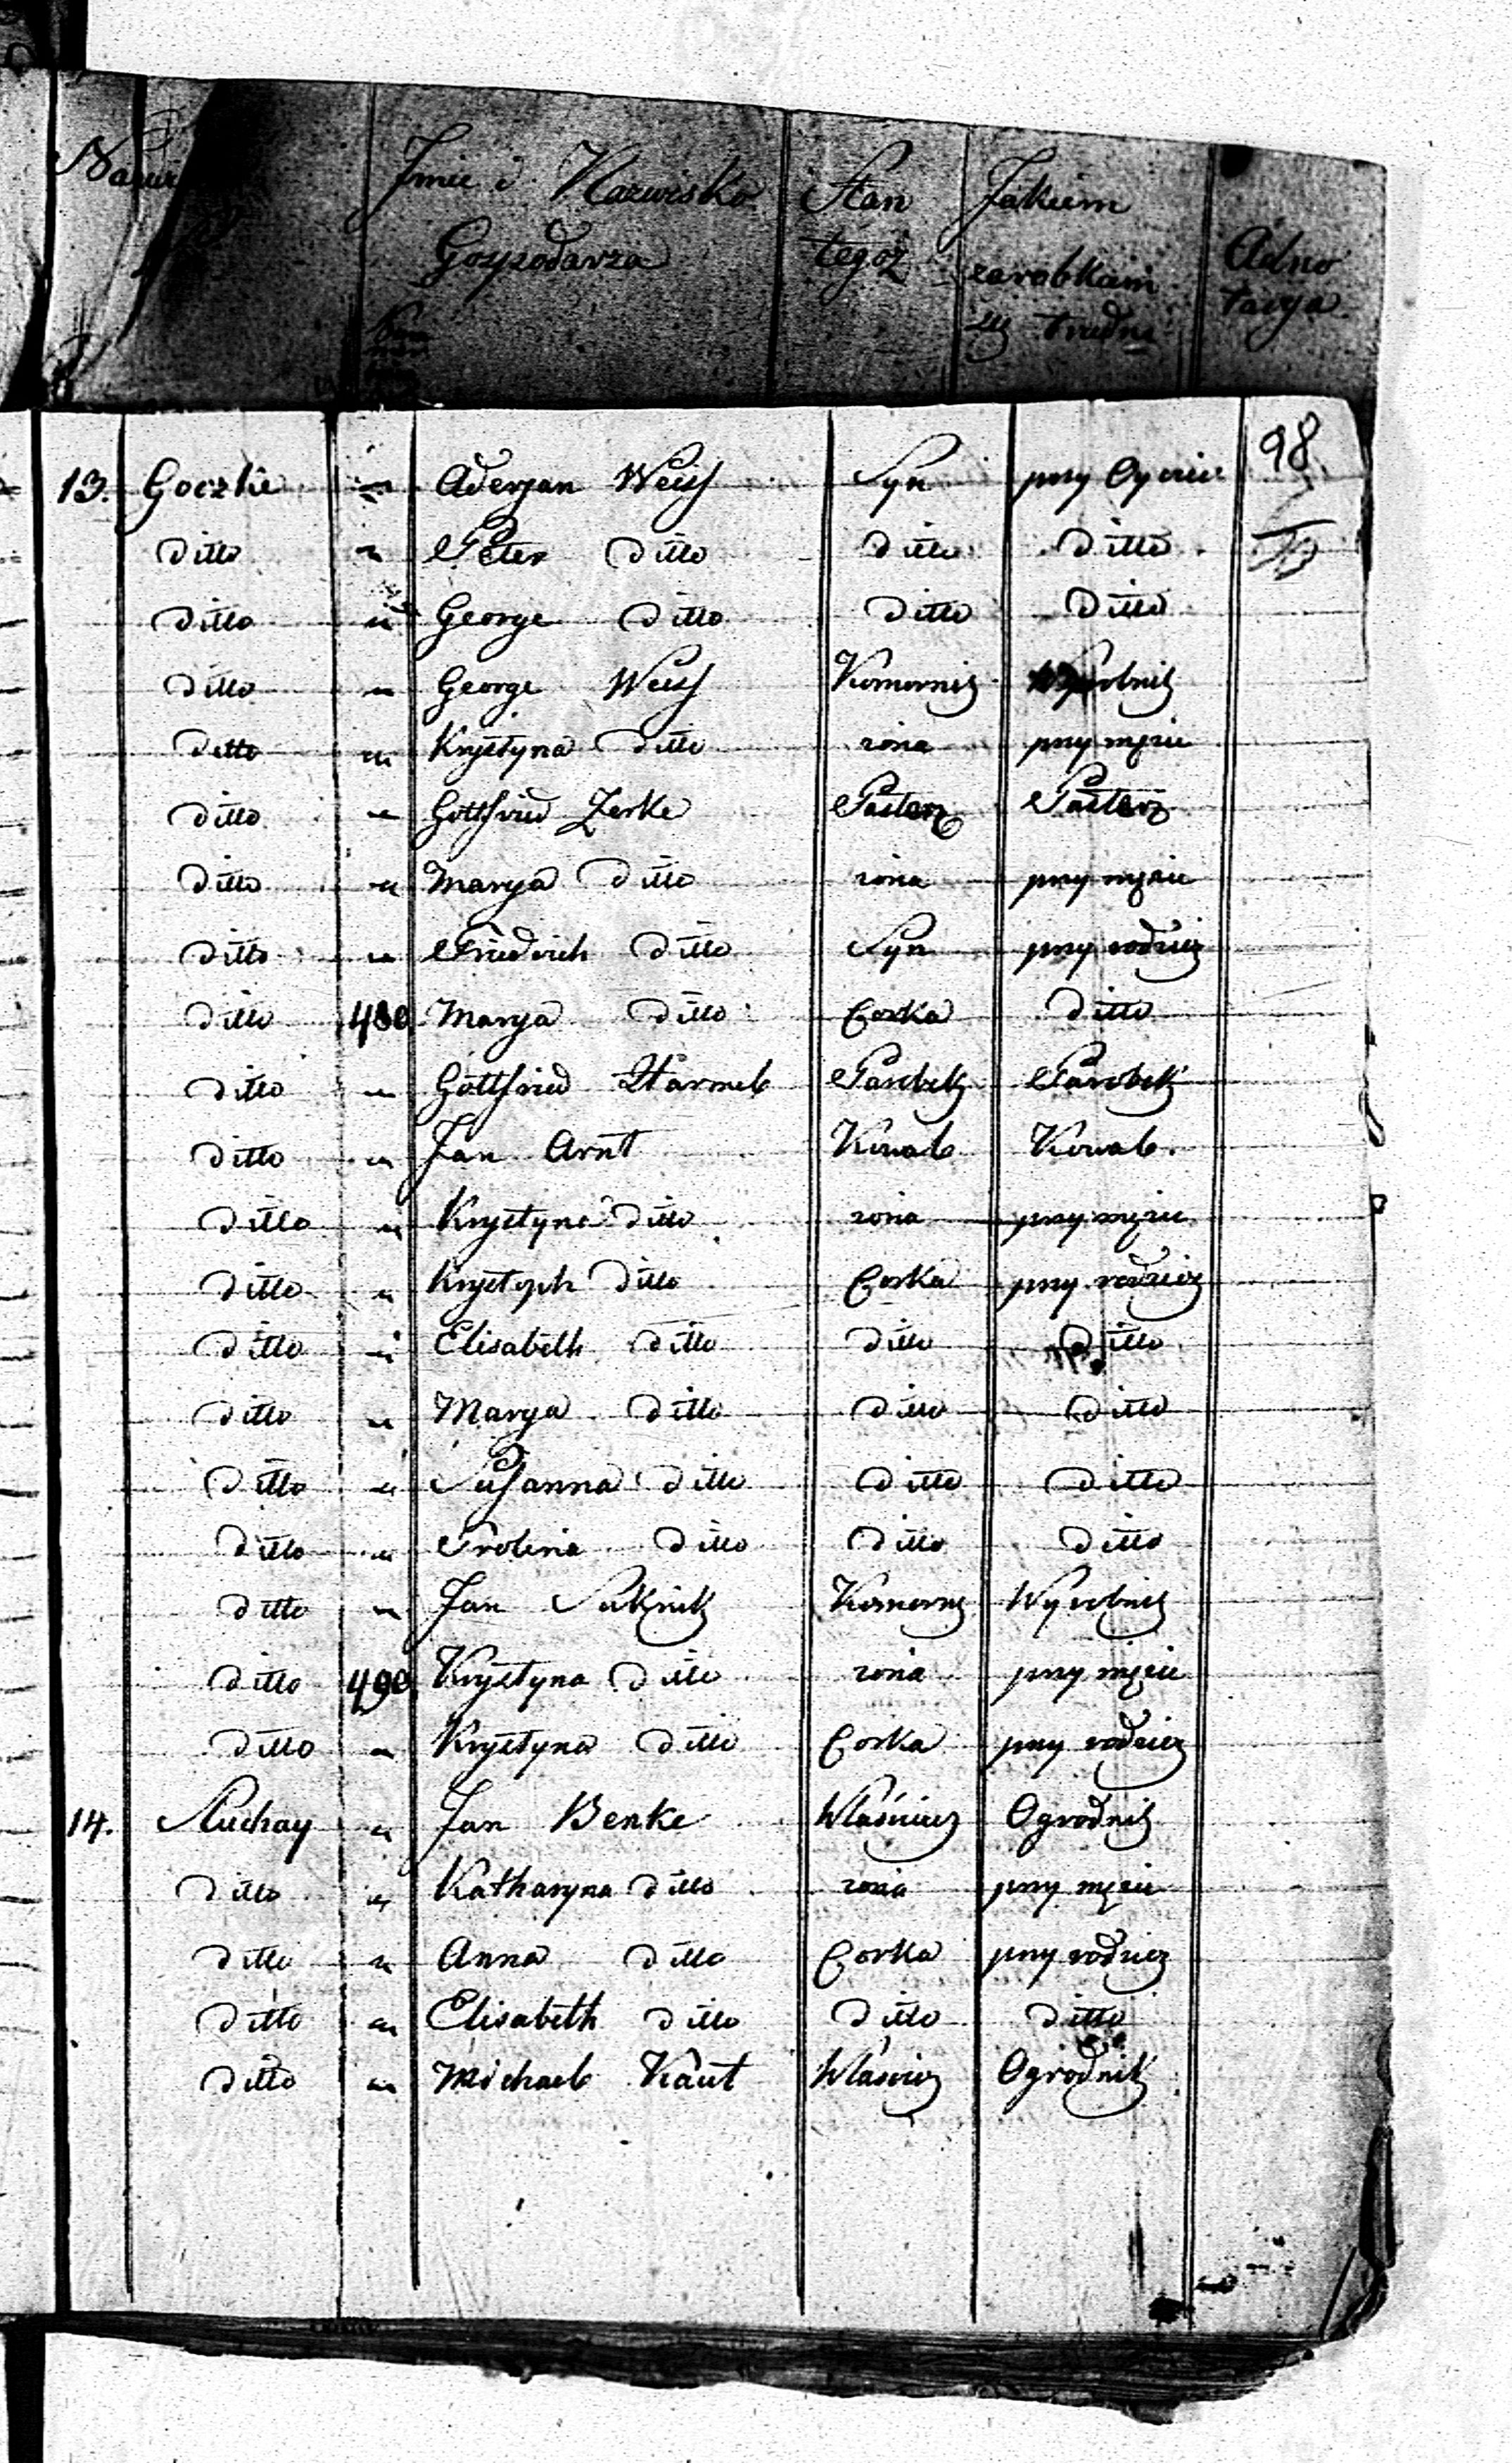 Imie i Nazwisko Gospodarza
Stan tegoż
Jakiem zarobkiem się trudni
Adnotacya
98
13. Goczki " Aderjan Weiss Syn przy Oycu
Ditto " Peter Ditto Ditto Ditto
Ditto " George Ditto Ditto Ditto
Ditto " George Weiss Komornik Wyrobnik
Ditto " Krystyna Ditto żona przy mężu
Ditto " Gottfried Zerke Pasterz Pasterz
Ditto " Marya Ditto żona przy mężu
Ditto " Friedrich Ditto Syn przy rodzic
Ditto 480 Marya Ditto Corka Ditto
Ditto " Gottfried Parobek Parobek
Ditto " Jan Arnt Kowal Kowal.
Ditto " Krystyna Ditto żona przy mężu
Ditto " Krystoph Ditto Corka przy rodzic
Ditto " Elisabeth Ditto Ditto Ditto
Ditto " Marya Ditto Ditto Ditto
Ditto " Susanna Ditto Ditto Ditto
Ditto " Ditto Ditto Ditto
Ditto " Jan Suknik Komornik Wyrobnik
Ditto 490 Krystyna Ditto żona przy mężu
Ditto " Krystyna Ditto Corka przy rodzic
14. Suchay " Jan Benke Właściciel Ogrodnik
Ditto " Katharyna Ditto żona przy mężu
Ditto " Anna Ditto Corka przy rodzic
Ditto " Elisabeth Ditto Ditto Ditto
Ditto " Michael Kaut Właściciel Ogrodnik